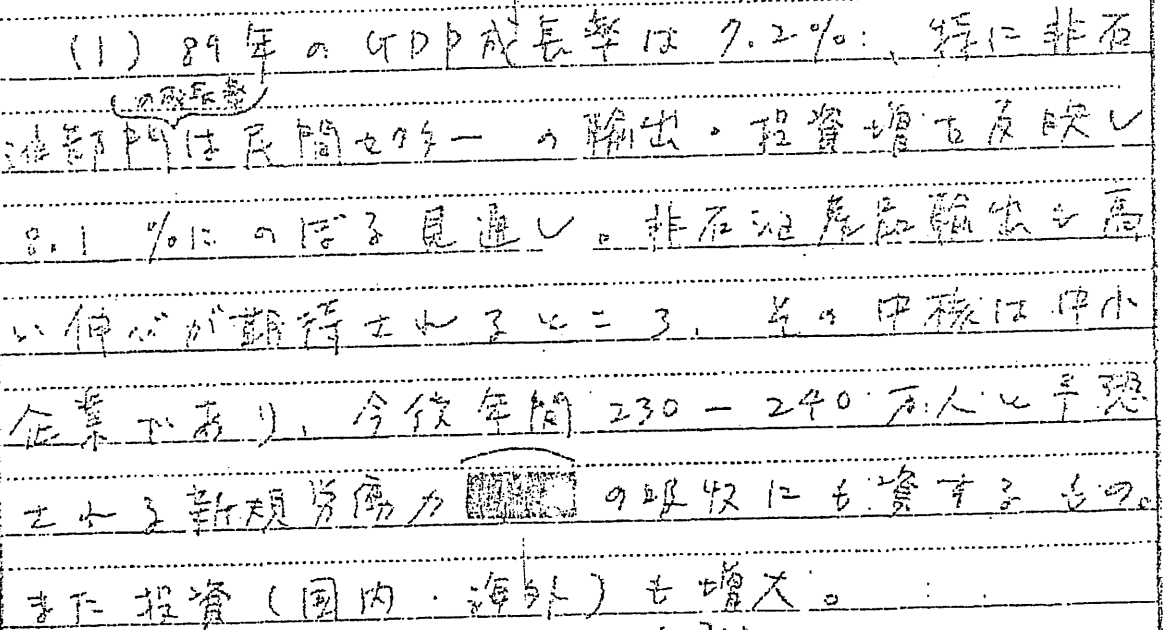 (1) 89年のGDP成長率は7.2%、特に非石
の成長率
油部門は民間セクターの輸出・投資増を反映し
8.1%にのぼる見通し。非石油産品輸出も高
い伸びが期待されるところ、その中核は中小
企業であり、今後年間230-240万人と予想
される新規労働力の吸収にも資するもの。
また投資(国内・海外)も増大。